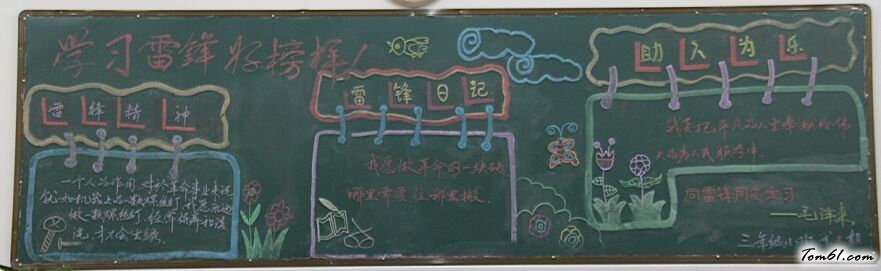 学习雷锋好榜样！
雷锋精神
一个人的作用 对於革命事业来说
就如机器上的一颗螺丝钉 我愿永远
做一颗螺丝钉
才会生锈
雷锋日记
我愿做革命的一块砖
哪里需要往那里搬
助人为乐
我要把平凡的人生奉献给伟
大的为人民服务中
向雷锋同志学习
——毛泽东
三年级
Tom61.com